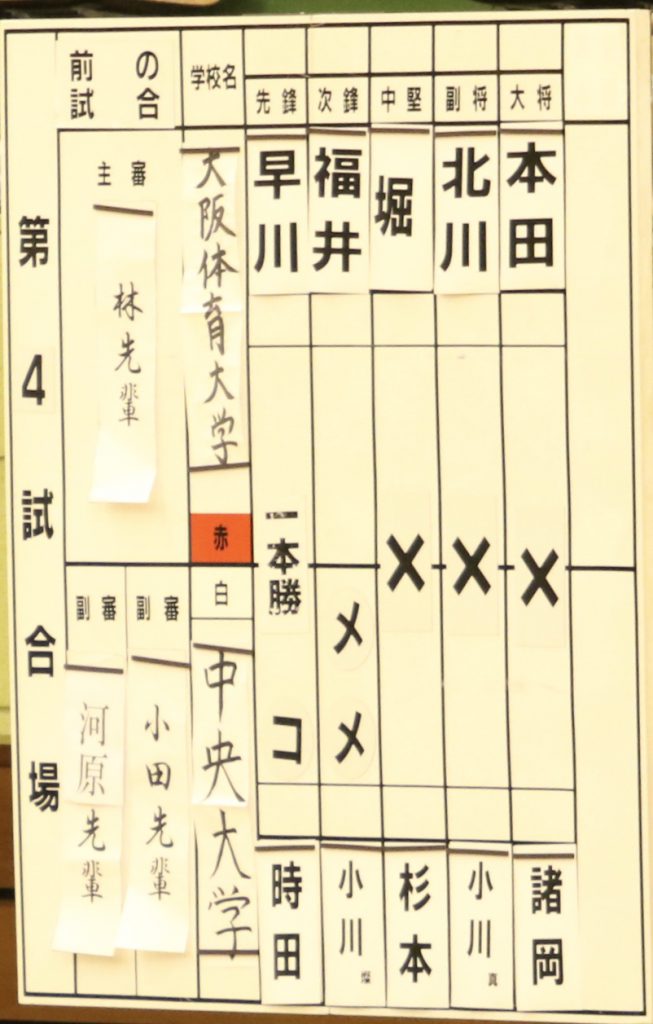 第4試合場
前の
試合
主審
林先輩
副審
河原先輩
副審
小田先輩
学校名
大阪体育大学
赤
白
中央大学
先鋒
早川
一本勝
コ
時田
次鋒
福井
メ
メ
小川
中堅
堀
×
杉本
副将
北川
×
小川真
大将
本田
×
諸岡